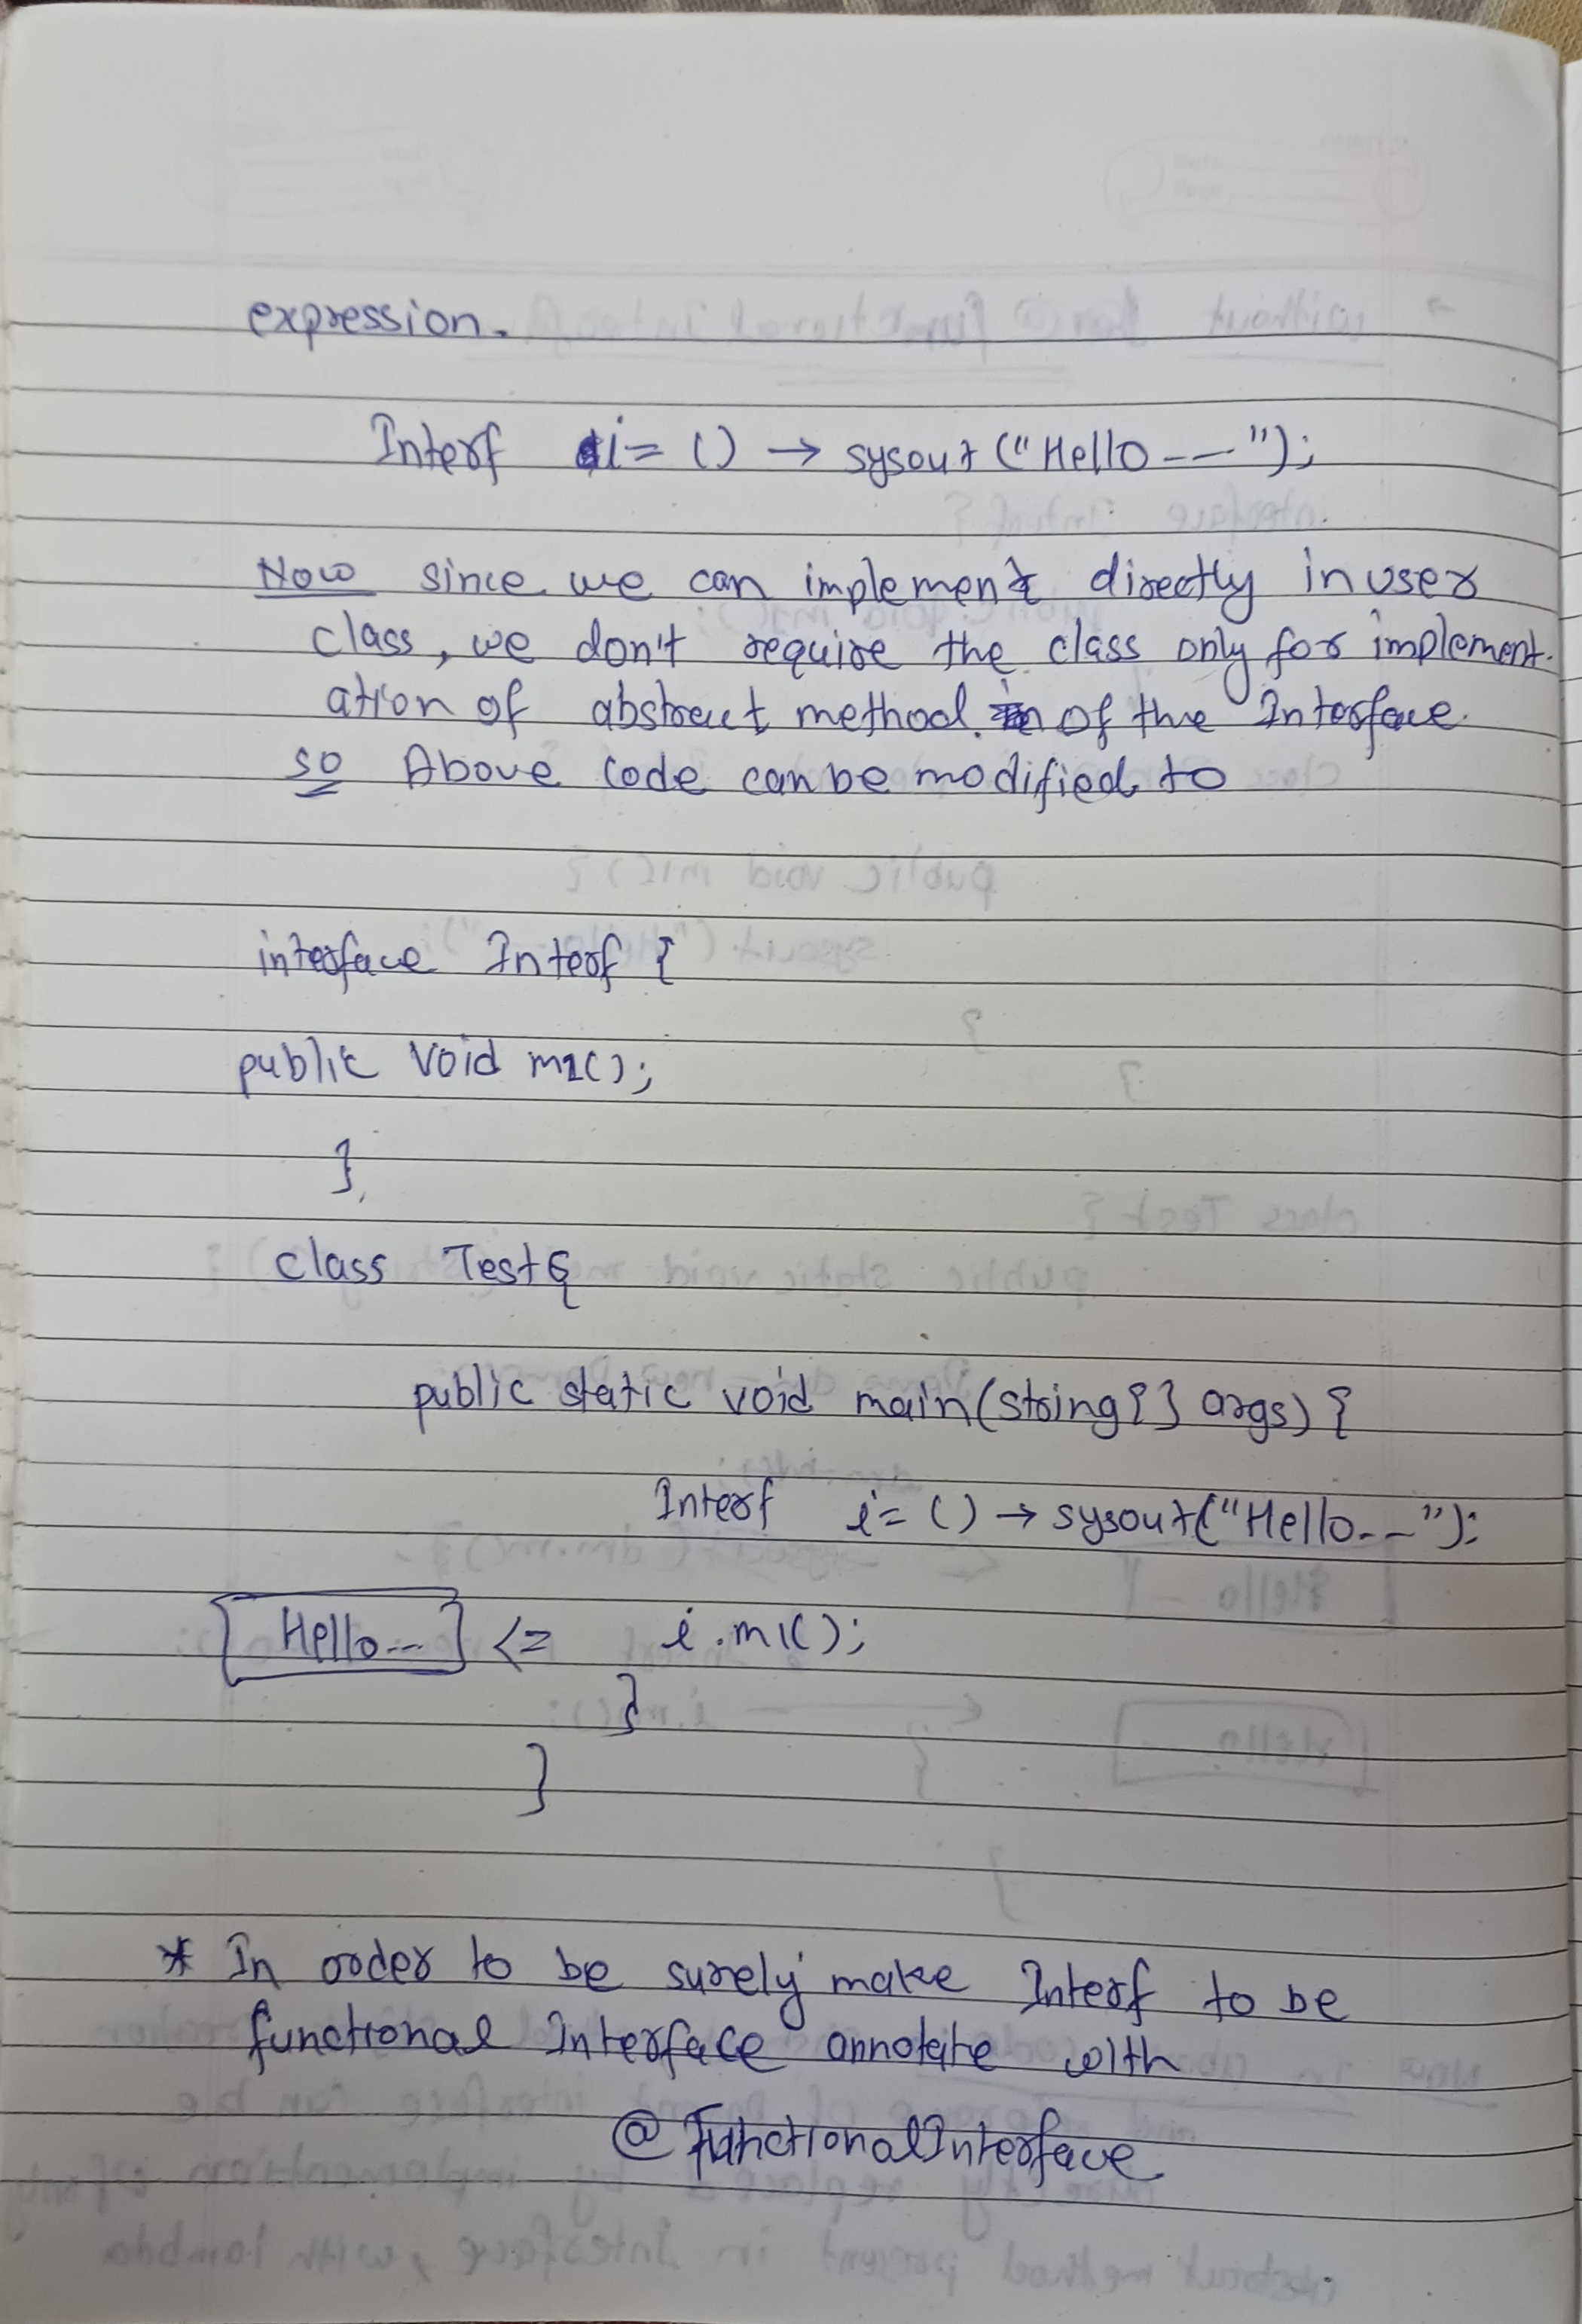 expression.
Interf i = () → sysout ("Hello---");
Now since we can implement directly in user
class, we don't require the class only for implement.
ation of abstract method of the Interface.
so Above code can be modified to
interface Interf {
public void m1();
}
class Test {
public static void main(string { } args) {
Interf i = () → sysout("Hello--");
Hello-- <= i.m1();
}
}
* In order to be surely make Interf to be
functional Interface annotate with
@FunctionalInterface